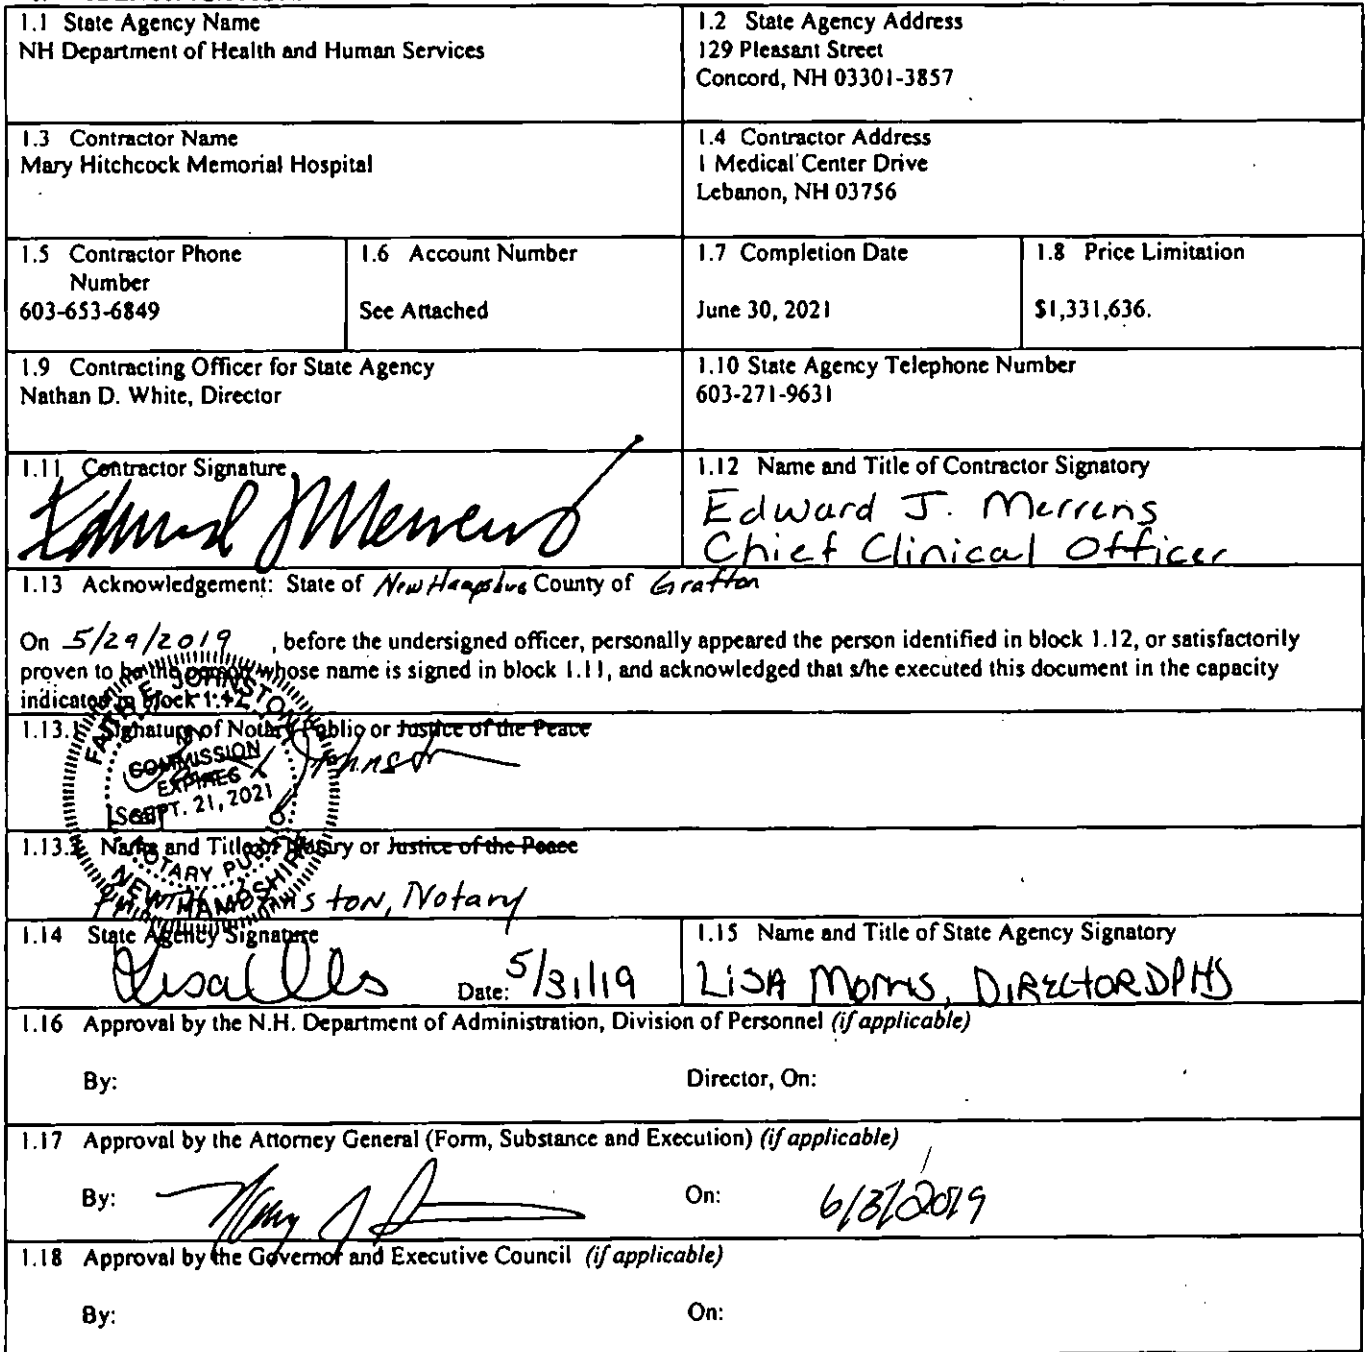 1.1 State Agency Name
NH Department of Health and Human Services
1.2 State Agency Address
129 Pleasant Street
Concord, NH 03301-3857
1.3 Contractor Name
Mary Hitchcock Memorial Hospital
1.4 Contractor Address
1 Medical Center Drive
Lebanon, NH 03756
1.5 Contractor Phone
Number
603-653-6849
1.6 Account Number
See Attached
1.7 Completion Date
June 30, 2021
1.8 Price Limitation
$1,331,636.
1.9 Contracting Officer for State Agency
Nathan D. White, Director
1.10 State Agency Telephone Number
603-271-9631
1.11 Contractor Signature
Edward J Merrens
1.12 Name and Title of Contractor Signatory
Edward J. Merrens
Chief Clinical Officer
1.13 Acknowledgement: State of New Hampshire County of Grafton
On 5/29/2019, before the undersigned officer, personally appeared the person identified in block 1.12, or satisfactorily
proven to be the person whose name is signed in block 1.11, and acknowledged that s/he executed this document in the capacity
indicated in block 1.12.
1.13.1 Signature of Notary Public or Justice of the Peace
Johnston
[Seal]
FAITH E. JOHNSTON
MY
COMMISSION
EXPIRES
SEPT. 21, 2021
NOTARY PUBLIC
NEW HAMPSHIRE
1.13.2 Name and Title of Notary or Justice of the Peace
Johnston, Notary
1.14 State Agency Signature
Date: 5/31/19
1.15 Name and Title of State Agency Signatory
LISA MORRIS, DIRECTOR DPHS
1.16 Approval by the N.H. Department of Administration, Division of Personnel (if applicable)
By:
Director, On:
1.17 Approval by the Attorney General (Form, Substance and Execution) (if applicable)
By:
On: 6/3/2019
1.18 Approval by the Governor and Executive Council (if applicable)
By:
On: